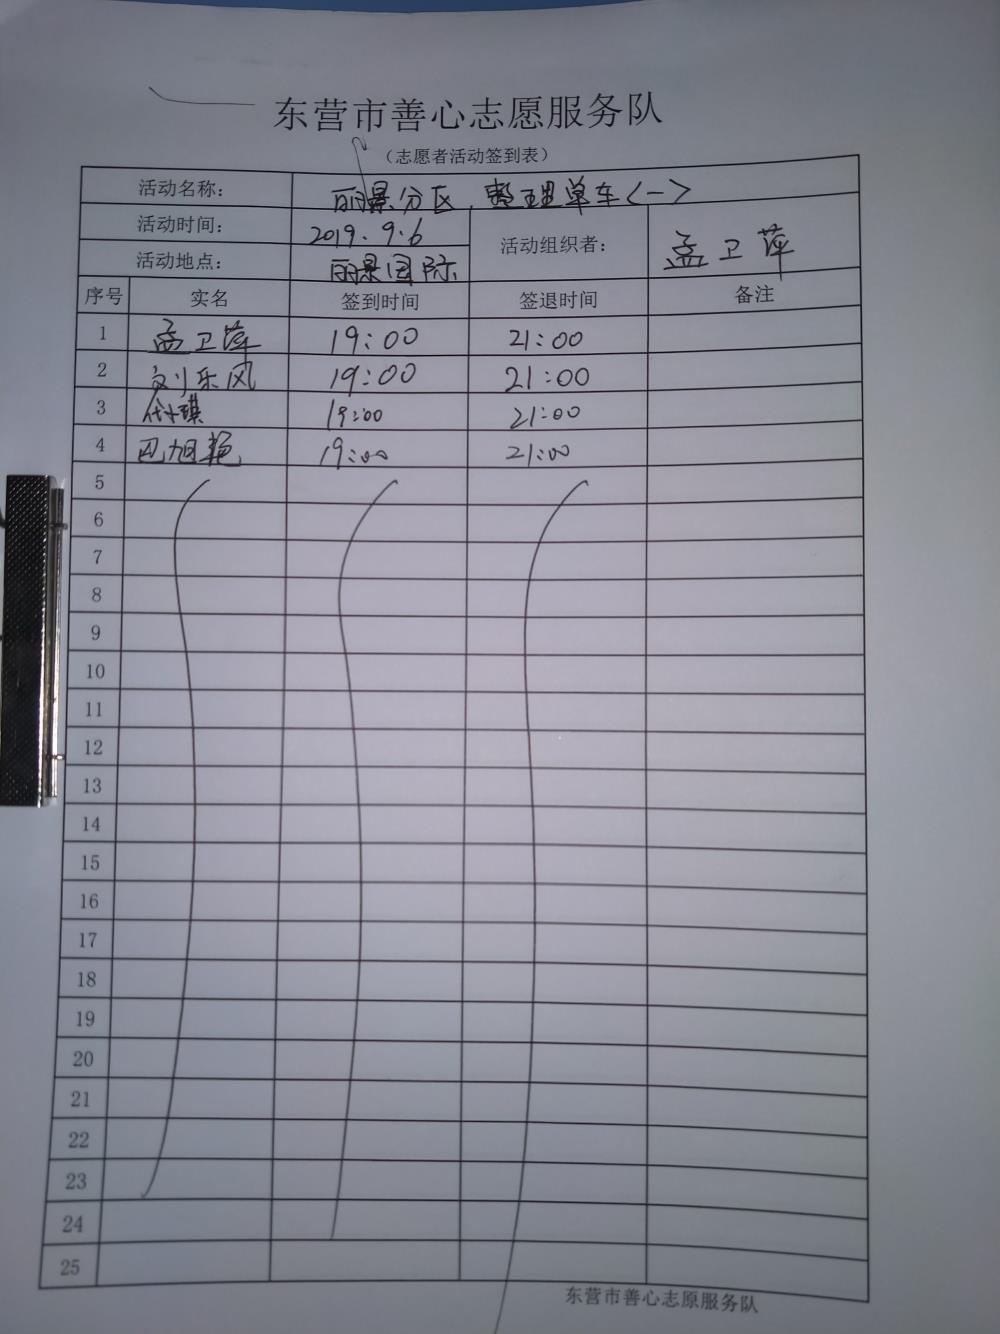 东营市善心志愿服务队
（志愿者活动签到表）
活动名称： 丽景分区，整理单车＜一＞
活动时间： 2019.9.6 活动组织者： 孟卫萍
活动地点： 丽景国际
序号 实名 签到时间 签退时间 备注
1 孟卫萍 19:00 21:00
2 刘乐风 19:00 21:00
3 19:00 21:00
4 巴旭艳 19:00 21:00
5
6
7
8
9
10
11
12
13
14
15
16
17
18
19
20
21
22
23
24
25
东营市善心志原服务队